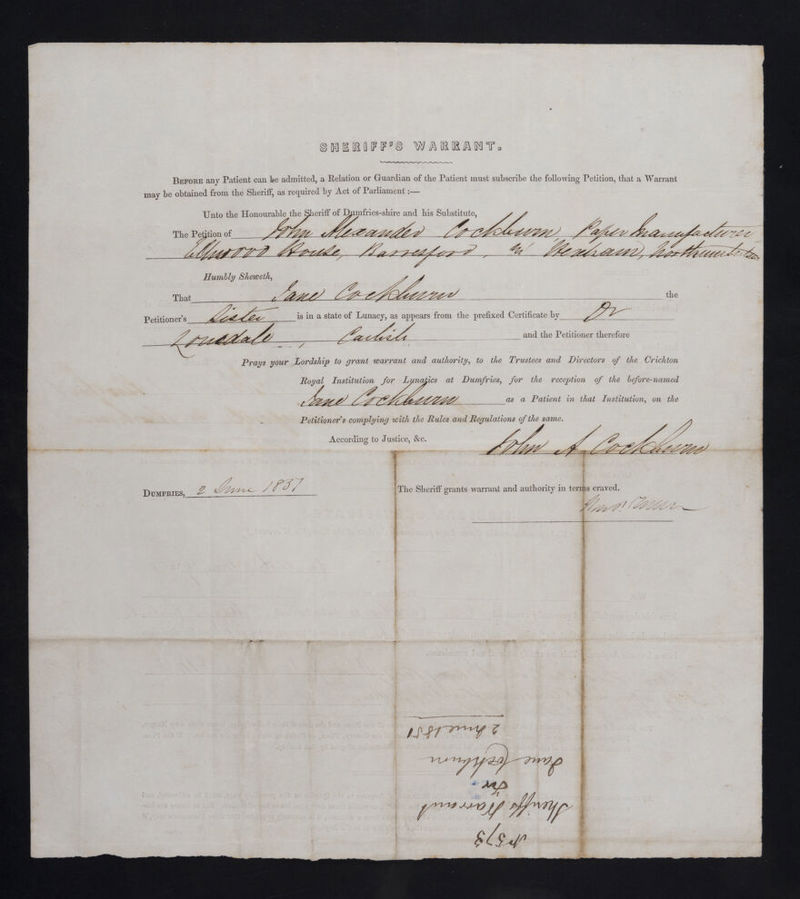 SHERIFF'S WARRANT.
BEFORE any Patient can be admitted, a Relation or Guardian of the Patient must subscribe the following Petition, that a Warrant
may be obtained from the Sheriff, as required by Act of Parliament :—
Unto the Honourable the Sheriff of Dumfries-shire and his Substitute,
The Petition of John Alexander Cockburn Paper Manufacturer
House, in Hexham, Northumberland
Humbly Sheweth,
That Jane Cockburn the
Petitioner's Sister is in a state of Lunacy, as appears from the prefixed Certificate by Dr
Lonsdale, Carlisle and the Petitioner therefore
Prays your Lordship to grant warrant and authority, to the Trustees and Directors of the Crichton
Royal Institution for Lunatics at Dumfries, for the reception of the before-named
Jane Cockburn as a Patient in that Institution, on the
Petitioner's complying with the Rules and Regulations of the same.
According to Justice, &c.
John A Cockburn
DUMFRIES, 2 June 1851
The Sheriff grants warrant and authority in terms craved.
No 573
Sheriffs Warrant
for
Jane Cockburn
2 June 1851